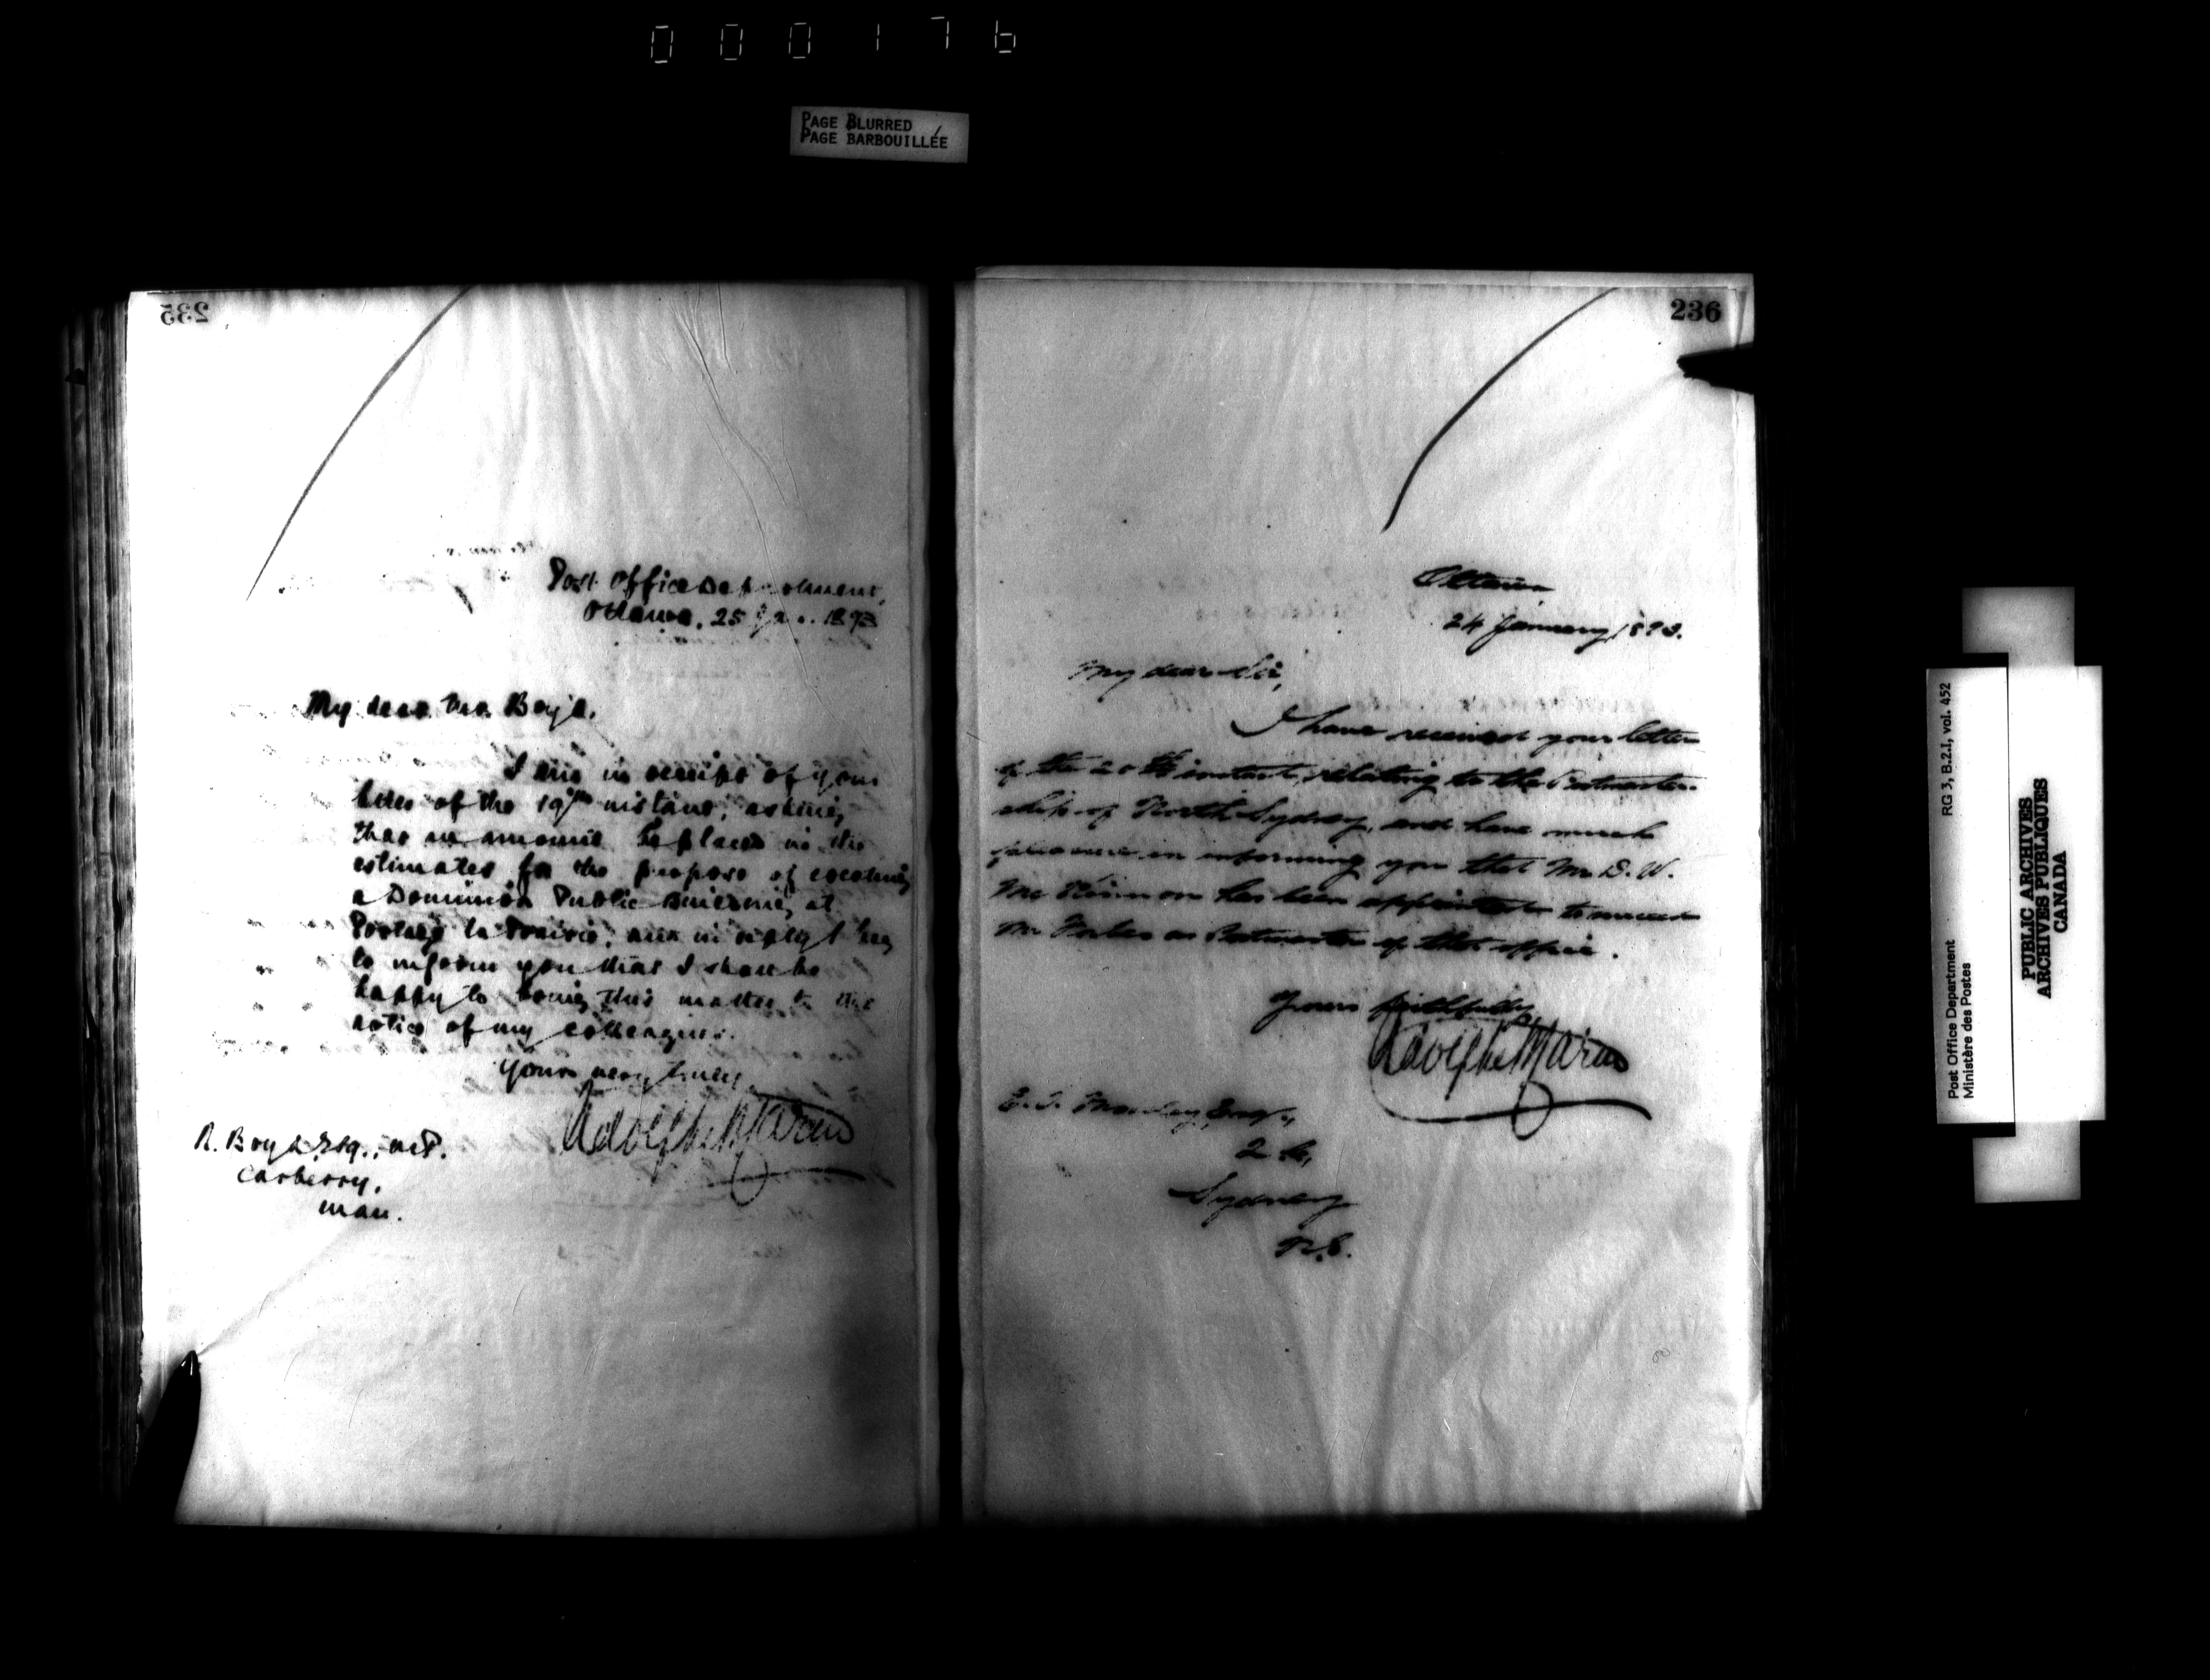 000176
PAGE BLURRED
PAGE BARBOUILLÉE
235
Post Office Department,
Ottawa, 25 Jan. 1893
My dear Mr. Boyd,
I am in receipt of your
letter of the 19th instant, asking
that an amount be placed in the
estimates for the purpose of erecting
a Dominion Public Building at
Portage la Prairie, and in reply I beg
to inform you that I shall be
happy to bring this matter to the
notice of my colleagues.
Yours very truly,
Adolphe P. Caron
R. Boyd, Esq., M.P.
Carberry,
Man.
236
Ottawa
24 January, 1893.
My dear Sir,
I have received your letter
of the 20th instant, relating to the Postmaster-
ship of North Sydney, and have much
pleasure in informing you that Mr. D. W.
McKinnon has been appointed to succeed
Mr. Forbes as Postmaster of that office.
Yours faithfully,
Adolphe P. Caron
E. T. Moseley, Esq.,
Q.C.,
Sydney
N.S.
RG 3, B.2.I, vol. 452
Post Office Department
Ministère des Postes
PUBLIC ARCHIVES
ARCHIVES PUBLIQUES
CANADA